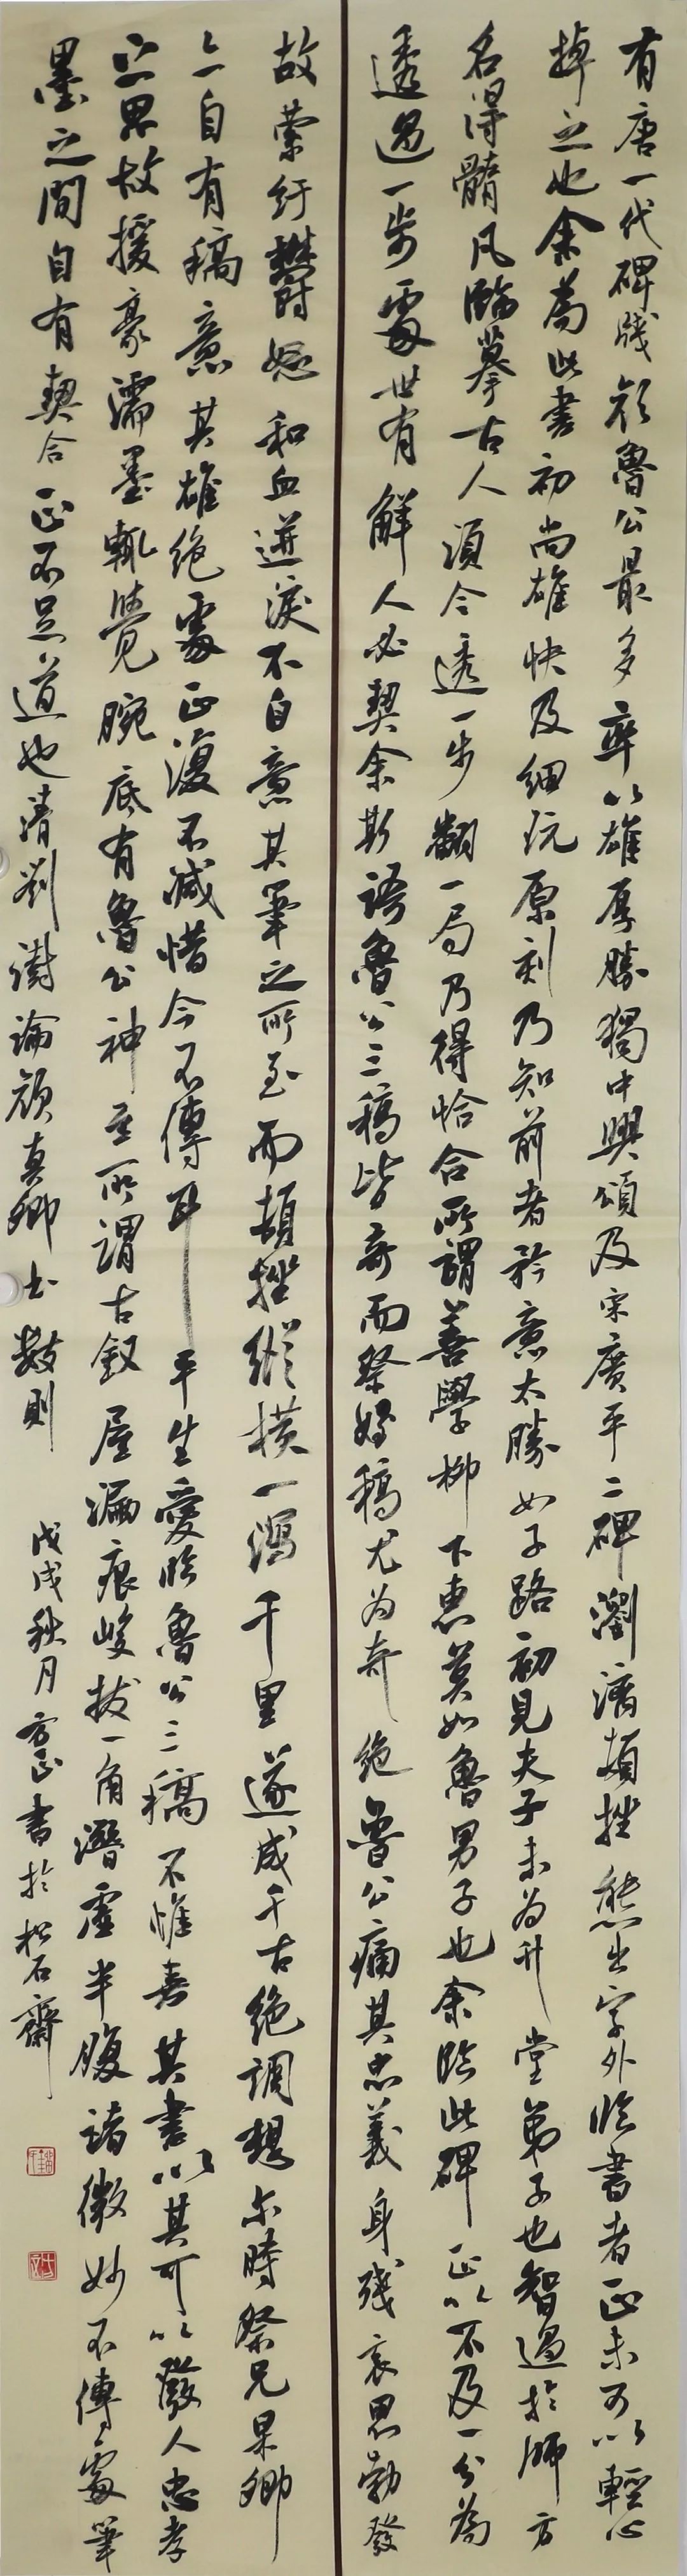 有唐一代碑牋顏魯公最多率以雄厚勝獨中興頌及宋廣平二碑瀏漓頓挫態出字外臨書者正未可以輕心
掉之也余為此書初尚雄快及細玩原刻乃知前者矜意太勝如子路初見夫子未為升堂弟子也智過於師方
名得髓凡臨摹古人須令透一步翻一局乃得恰合所謂善學柳下惠莫如魯男子也余臨此碑正以不及一分為
透過一步處世有解人必契余斯語魯公三稿皆奇而祭姪稿尤為奇絕魯公痛其忠義身殘哀思勃發
故縈紆鬱怒和血迸淚不自意其筆之所至而頓挫縱橫一瀉千里遂成千古絕調想尔時祭兄杲卿
亦自有稿意其雄絕處正復不減惜今不傳耳平生愛臨魯公三稿不惟喜其書以其可以發人忠孝
之思故援豪濡墨輒覺腕底有魯公神至所謂古釵屋漏痕峻拔一角潛虛半腹諸微妙不傳處筆
墨之間自有契合正不足道也清劉澍論顏真卿書數則
戊戌秋月方正書於松石齋